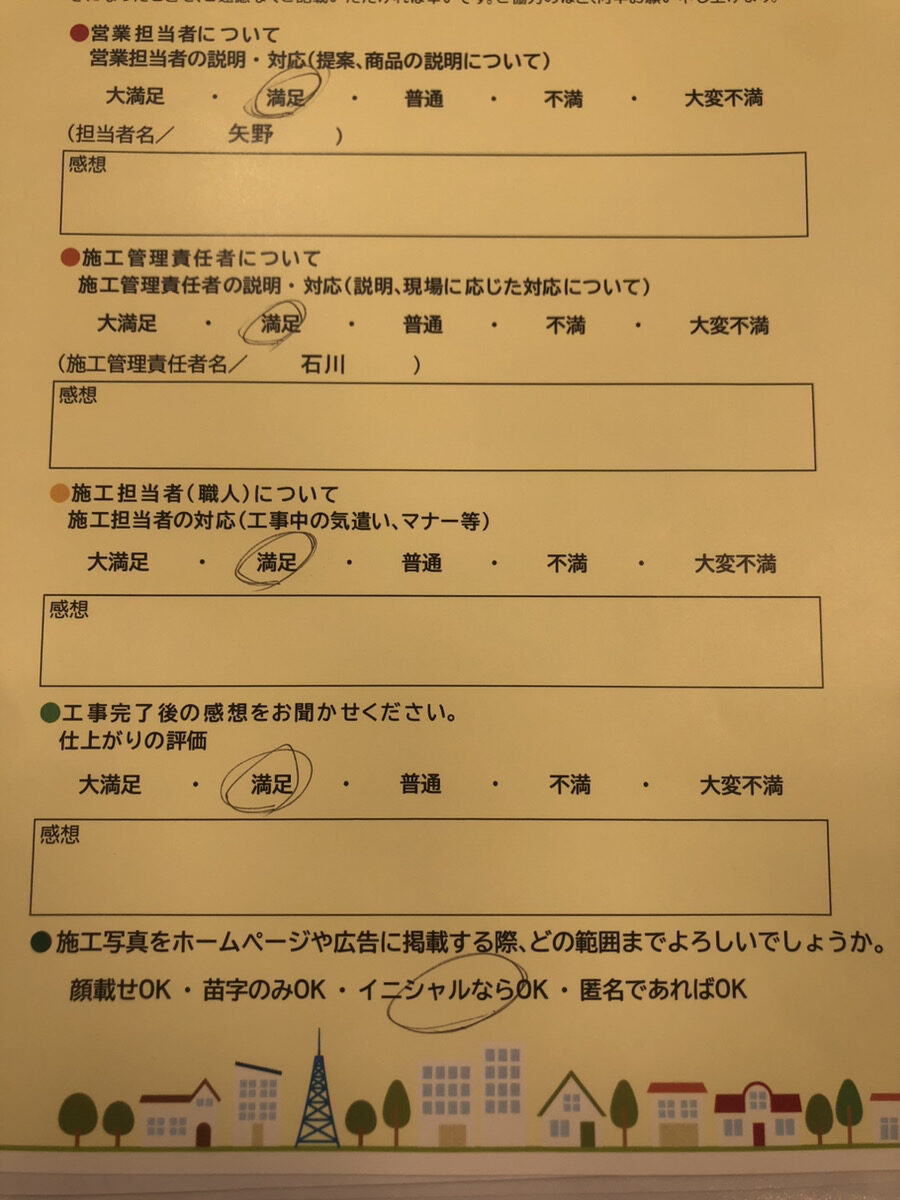 ●営業担当者について
営業担当者の説明・対応(提案、商品の説明について)
大満足 ・ 満足 ・ 普通 ・ 不満 ・ 大変不満
(担当者名／ 矢野 )
感想
●施工管理責任者について
施工管理責任者の説明・対応(説明、現場に応じた対応について)
大満足 ・ 満足 ・ 普通 ・ 不満 ・ 大変不満
(施工管理責任者名／ 石川 )
感想
●施工担当者(職人)について
施工担当者の対応(工事中の気遣い、マナー等)
大満足 ・ 満足 ・ 普通 ・ 不満 ・ 大変不満
感想
●工事完了後の感想をお聞かせください。
仕上がりの評価
大満足 ・ 満足 ・ 普通 ・ 不満 ・ 大変不満
感想
●施工写真をホームページや広告に掲載する際、どの範囲までよろしいでしょうか。
顔載せOK ・ 苗字のみOK ・ イニシャルならOK ・ 匿名であればOK